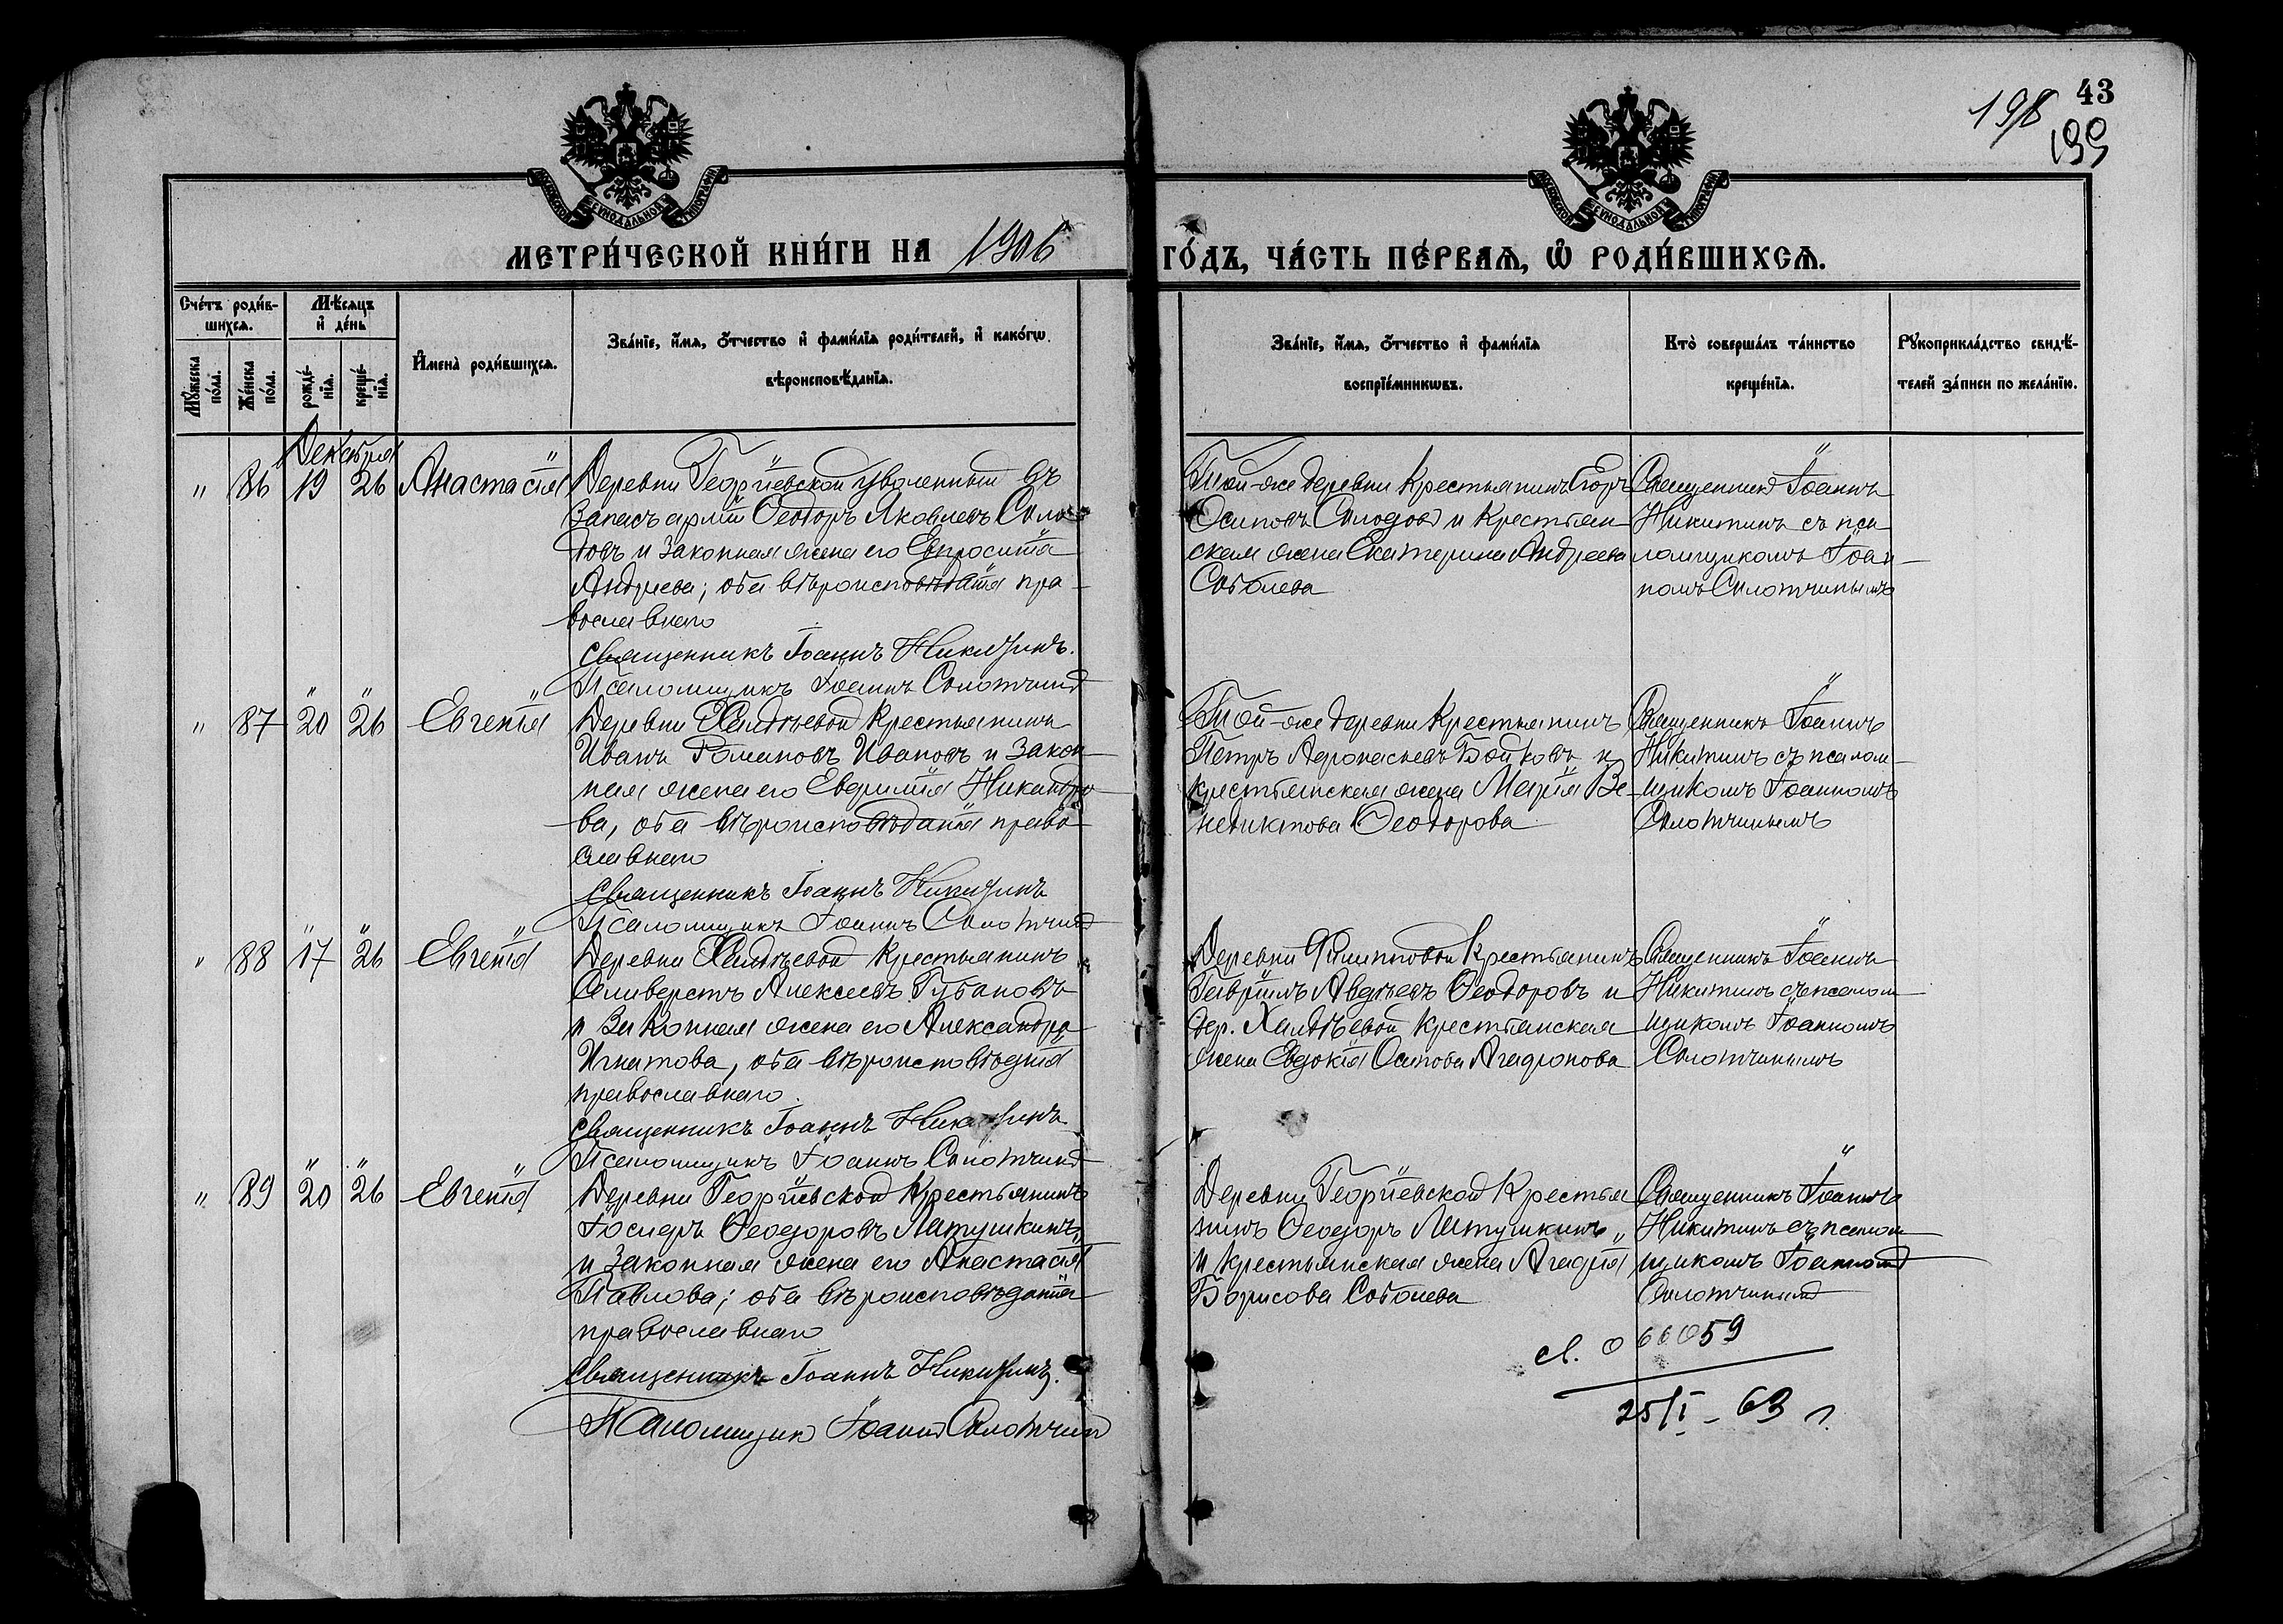 43
198
199
МОСКОВСКОЙ СѴНОДАЛЬНОЙ ТИПОГРАФІИ
МОСКОВСКОЙ СѴНОДАЛЬНОЙ ТИПОГРАФІИ
МЕТРИ́ЧЕСКОЙ КНИ́ГИ НА 1906
ГО́ДЪ, ЧА́СТЬ ПЕ́РВАѦ, Ѽ РОДИ́ВШИХСѦ.
Сче́тъ роди́в-
шихсѧ.
Мѣ́сѧцъ
и҆ де́нь
Мꙋ́жеска
по́ла.
Же́нска
по́ла.
рожде́-
нїѧ.
креще́-
нїѧ.
И҆мена̀ роди́вшихсѧ.
Зва́нїе, и҆́мѧ, ѻ҆́тчество и҆ фами́лїѧ роди́телей, и҆ како́гѡ
вѣроисповѣ́данїѧ.
Зва́нїе, и҆́мѧ, ѻ҆́тчество и҆ фами́лїѧ
воспрїе́мникѡвъ.
Кто̀ соверша́лъ та́инство
креще́нїѧ.
Рꙋкоприкла́дство свидѣ́-
телей за́писи по жела́нїю.
Декабря
" 86 19 26 Анастасія
Деревни Георгіевской уволенный въ
запасъ арміи Ѳеодоръ Яковлевъ Соло-
довъ и законная жена его Евфросинія
Андреева; оба вѣроисповѣданія пра-
вославнаго
Священникъ Іоаннъ Никитинъ.
Псаломщикъ Іоаннъ Солотчинъ
Той-же деревни крестьянинъ Егоръ
Осиповъ Солодовъ и крестьян-
ская жена Екатерина Андреева
Соболева
Священникъ Іоаннъ
Никитинъ съ пса-
ломщикомъ Іоан-
номъ Солотчинымъ
" 87 20 26 Евгенія
Деревни Халдѣевой крестьянинъ
Иванъ Романовъ Ивановъ и закон-
ная жена его Евфимія Никандро-
ва, оба вѣроисповѣданія право-
славнаго
Священникъ Іоаннъ Никитинъ
Псаломщикъ Іоаннъ Солотчинъ
Той-же деревни крестьянинъ
Петръ Афонасьевъ Бойковъ и
крестьянская жена Марія Ве-
недиктова Ѳеодорова
Священникъ Іоаннъ
Никитинъ съ псалом-
щикомъ Іоанномъ
Солотчинымъ
" 88 17 26 Евгенія
Деревни Халдѣевой крестьянинъ
Селиверстъ Алексеевъ Губановъ
и законная жена его Александра
Игнатова, оба вѣроисповѣднія
православнаго.
Священникъ Іоаннъ Никитинъ
Псаломщикъ Іоаннъ Солотчинъ
Деревни Филипповой крестьянинъ
Гавріилъ Авдѣевъ Ѳеодоровъ и
дер. Халдѣевой крестьянская
жена Евдокія Осипова Агафонова
Священникъ Іоаннъ
Никитинъ съ псалом
щикомъ Іоанномъ
Солотчинымъ
" 89 20 26 Евгенія
Деревни Георгіевской крестьянинъ
Іосифъ Ѳеодоровъ Латушкинъ,
и законная жена его Анастасія
Павлова; оба вѣроисповѣданія
православнаго
Священникъ Іоаннъ Никитинъ.
Псаломщикъ Іоаннъ Солотчинъ
Деревни Георгіевской крестья
нинъ Ѳеодоръ Латушкинъ,
и крестьянская жена Агафія
Борисова Соболева
Священникъ Іоаннъ
Никитинъ съ псалом
щикомъ Іоанномъ
Солотчинымъ
066059
25/I - 63 г.